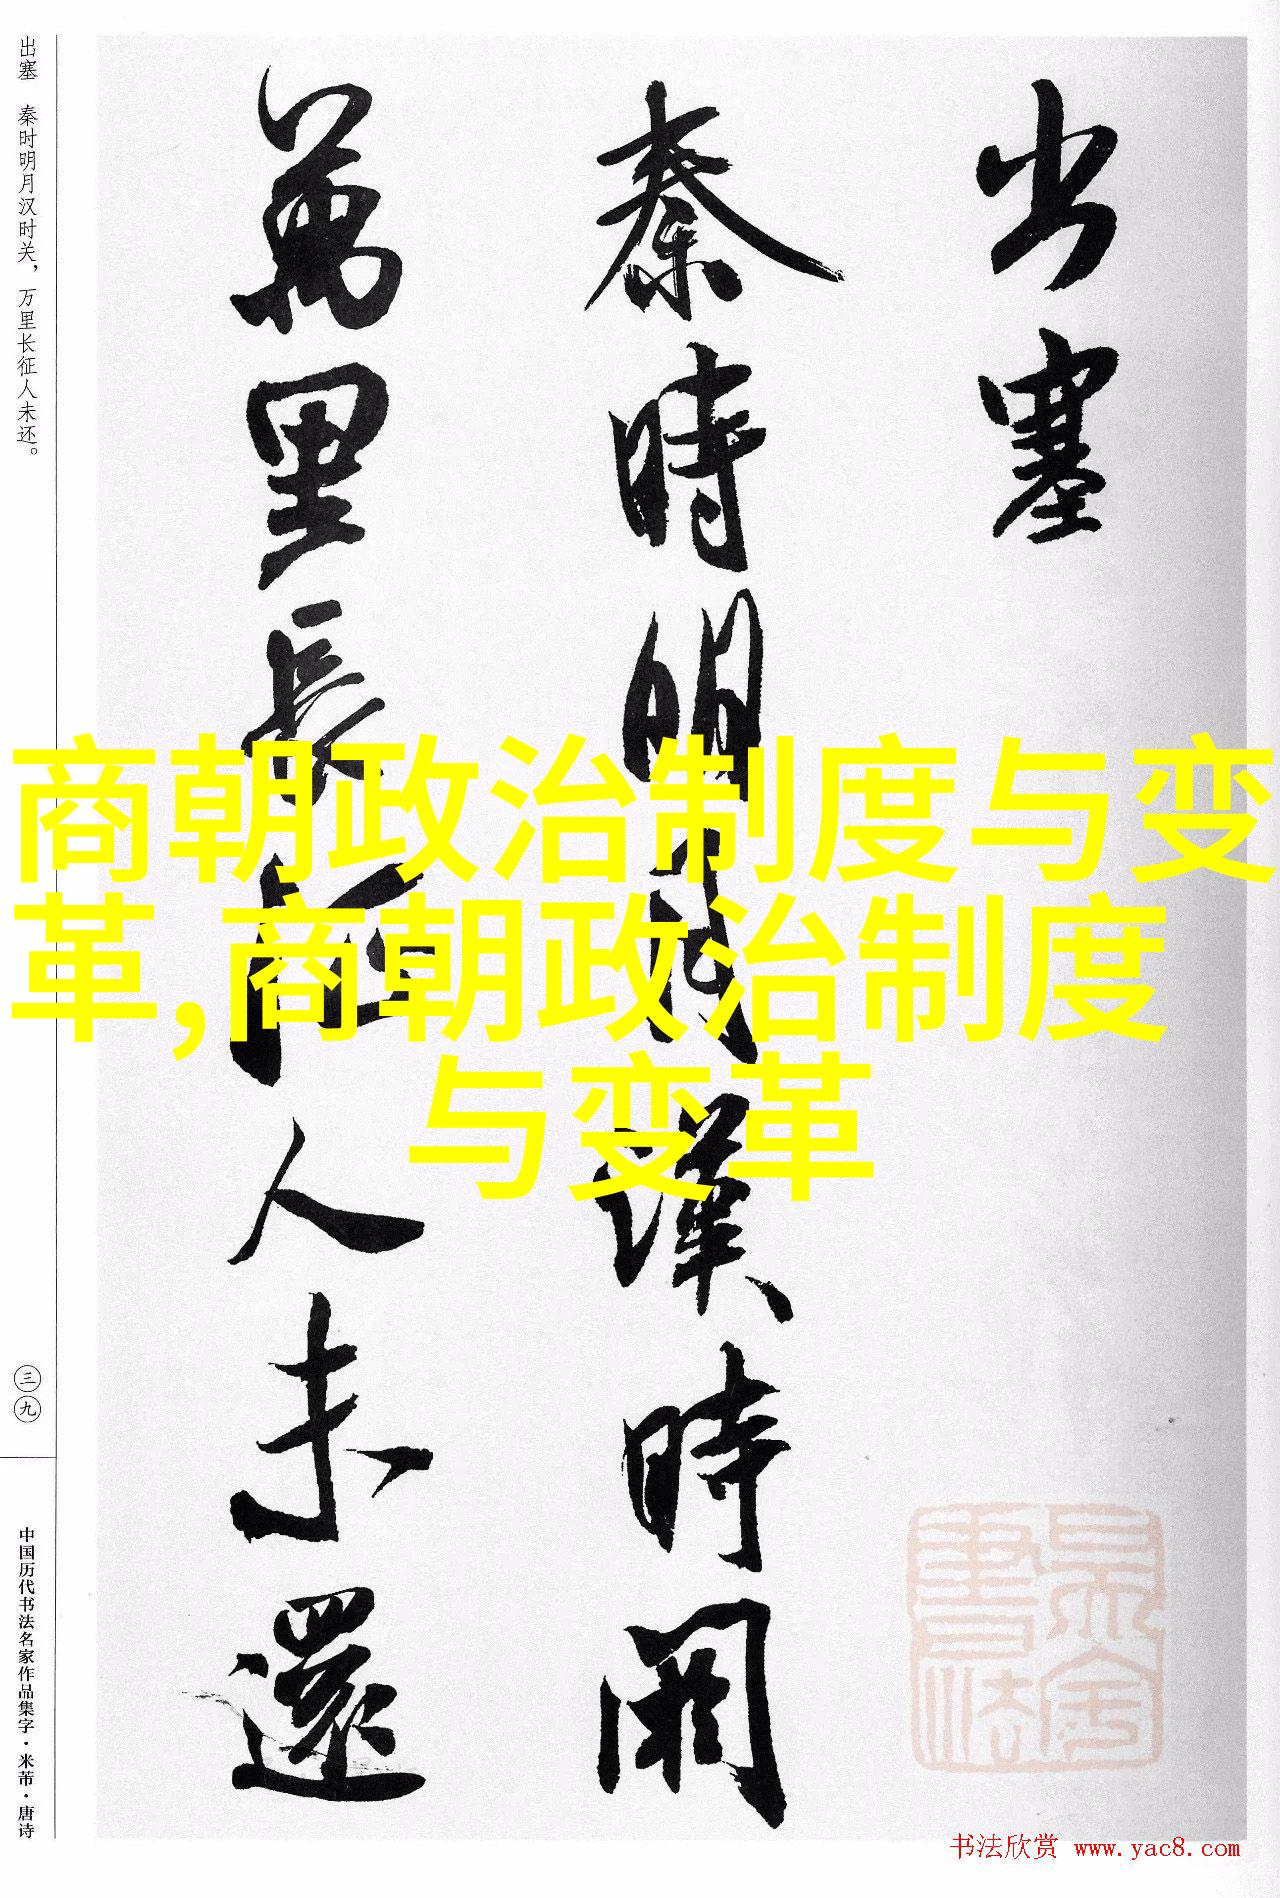 出塞
秦時明月漢時關
萬里長征人未還
出塞 秦时明月汉时关，万里长征人未还。
三九
中国历代书法名家作品集字·米芾·唐诗
商朝政治制度与变
革,商朝政治制度
与变革
书法欣赏 www.yac8.com